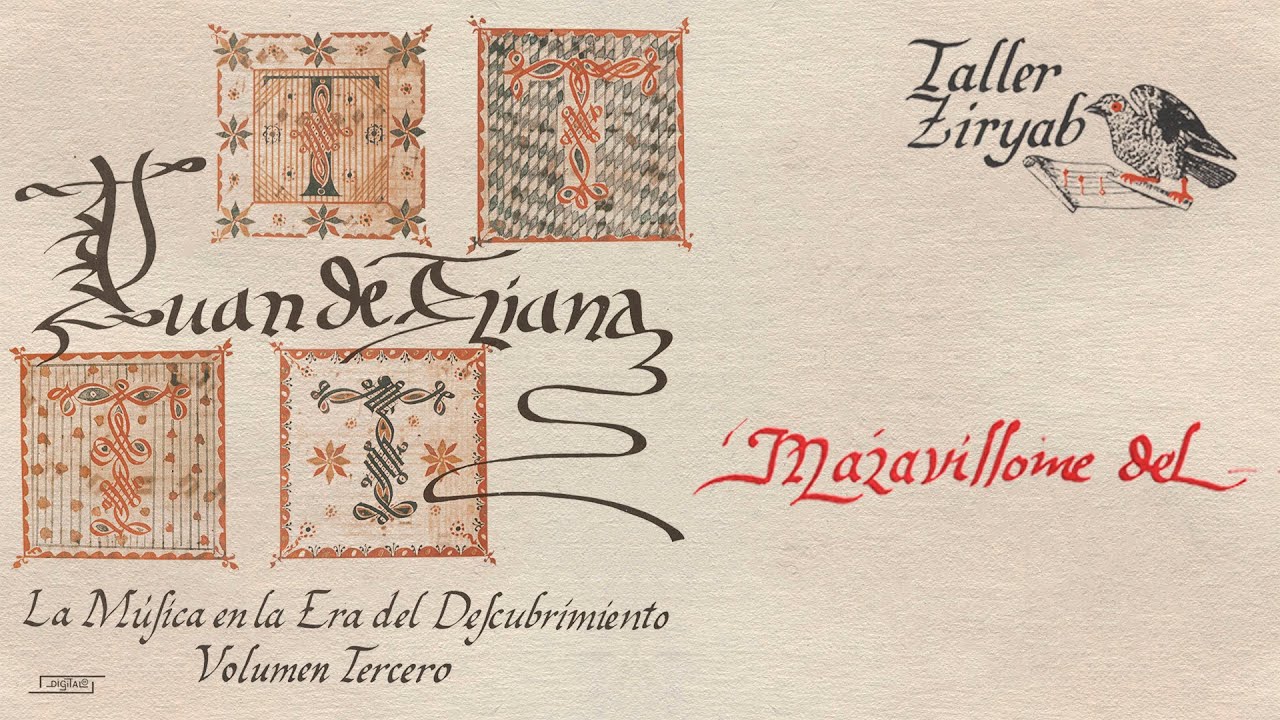 Taller
Ziryab
Juan de Triana
Maravillome del
La Múſica en la Era del Deſcubrimiento
Volumen Tercero
DIGITAL